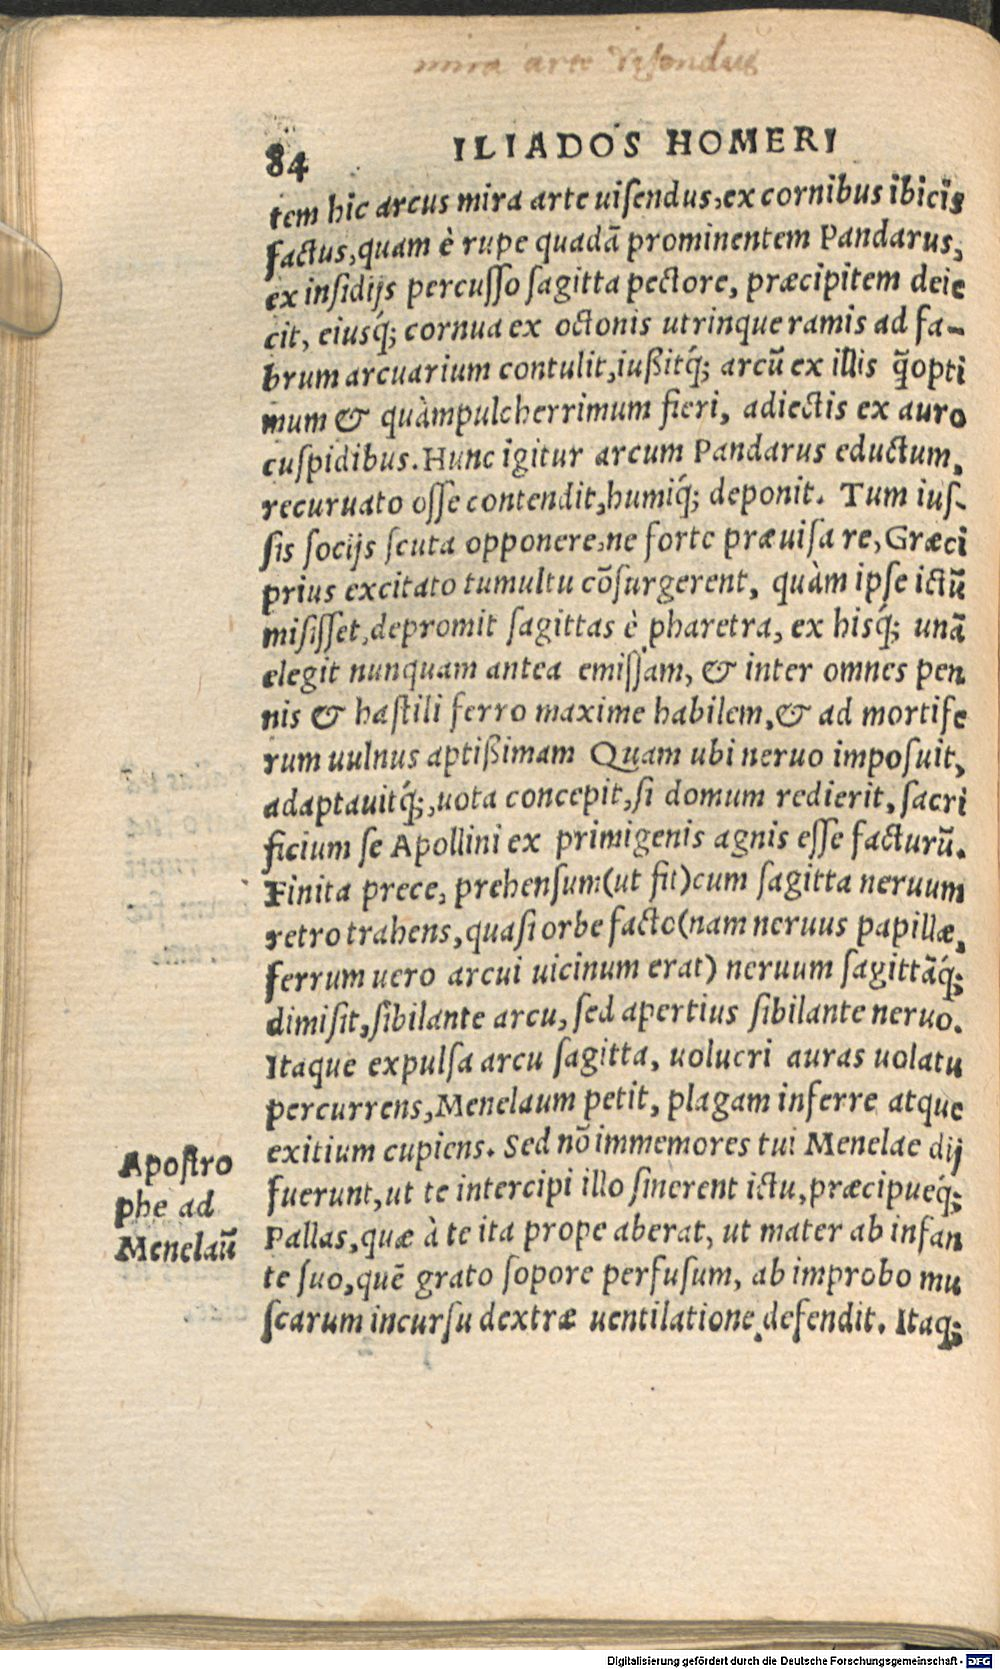 mira arte visendus
84 ILIADOS HOMERI
tem hic arcus mira arte uiſendus,ex cornibus ibicis
factus,quam è rupe quadã prominentem Pandarus,
ex inſidijs percuſſo ſagitta pectore, præcipitem deie
cit, eiusq́; cornua ex octonis utrinque ramis ad fa-
brum arcuarium contulit,iußitq́; arcũ ex illis q̃opti
mum & quàmpulcherrimum fieri, adiectis ex auro
cuſpidibus. Hunc igitur arcum Pandarus eductum,
recuruato oſſe contendit,humiq́; deponit. Tum iuſ-
ſis ſocijs ſcuta opponere,ne forte præuiſa re, Græci
prius excitato tumultu cõſurgerent, quàm ipſe ictũ
miſiſſet,depromit ſagittas è pharetra, ex hisq́; unã
elegit nunquam antea emiſſam, & inter omnes pen
nis & haſtili ferro maxime habilem,& ad mortife
rum uulnus aptißimam Quam ubi neruo impoſuit,
adaptauitq́;,uota concepit,ſi domum redierit, ſacri
ficium ſe Apollini ex primigenis agnis eſſe facturũ.
Finita prece, prehenſum(ut fit)cum ſagitta neruum
retro trahens,quaſi orbe facto(nam neruus papillæ,
ferrum uero arcui uicinum erat) neruum ſagittãq́;
dimiſit,ſibilante arcu, ſed apertius ſibilante neruo.
Itaque expulſa arcu ſagitta, uolucri auras uolatu
percurrens,Menelaum petit, plagam inferre atque
exitium cupiens. Sed nõ immemores tui Menelae dij
fuerunt,ut te intercipi illo ſinerent ictu,præcipueq́;
Pallas,quæ à te ita prope aberat, ut mater ab infan
te ſuo,quẽ grato ſopore perfuſum, ab improbo mu
ſcarum incurſu dextræ uentilatione defendit. Itaq;
Apoſtro
phe ad
Menelaũ
Digitalisierung gefördert durch die Deutsche Forschungsgemeinschaft - DFG